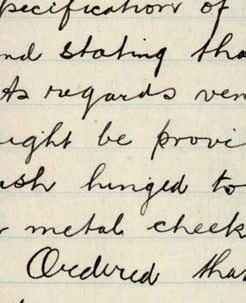 pecification of
nd stating tha
As regards ven
ught be provi
ash hinged to
metal cheek
Ordered that